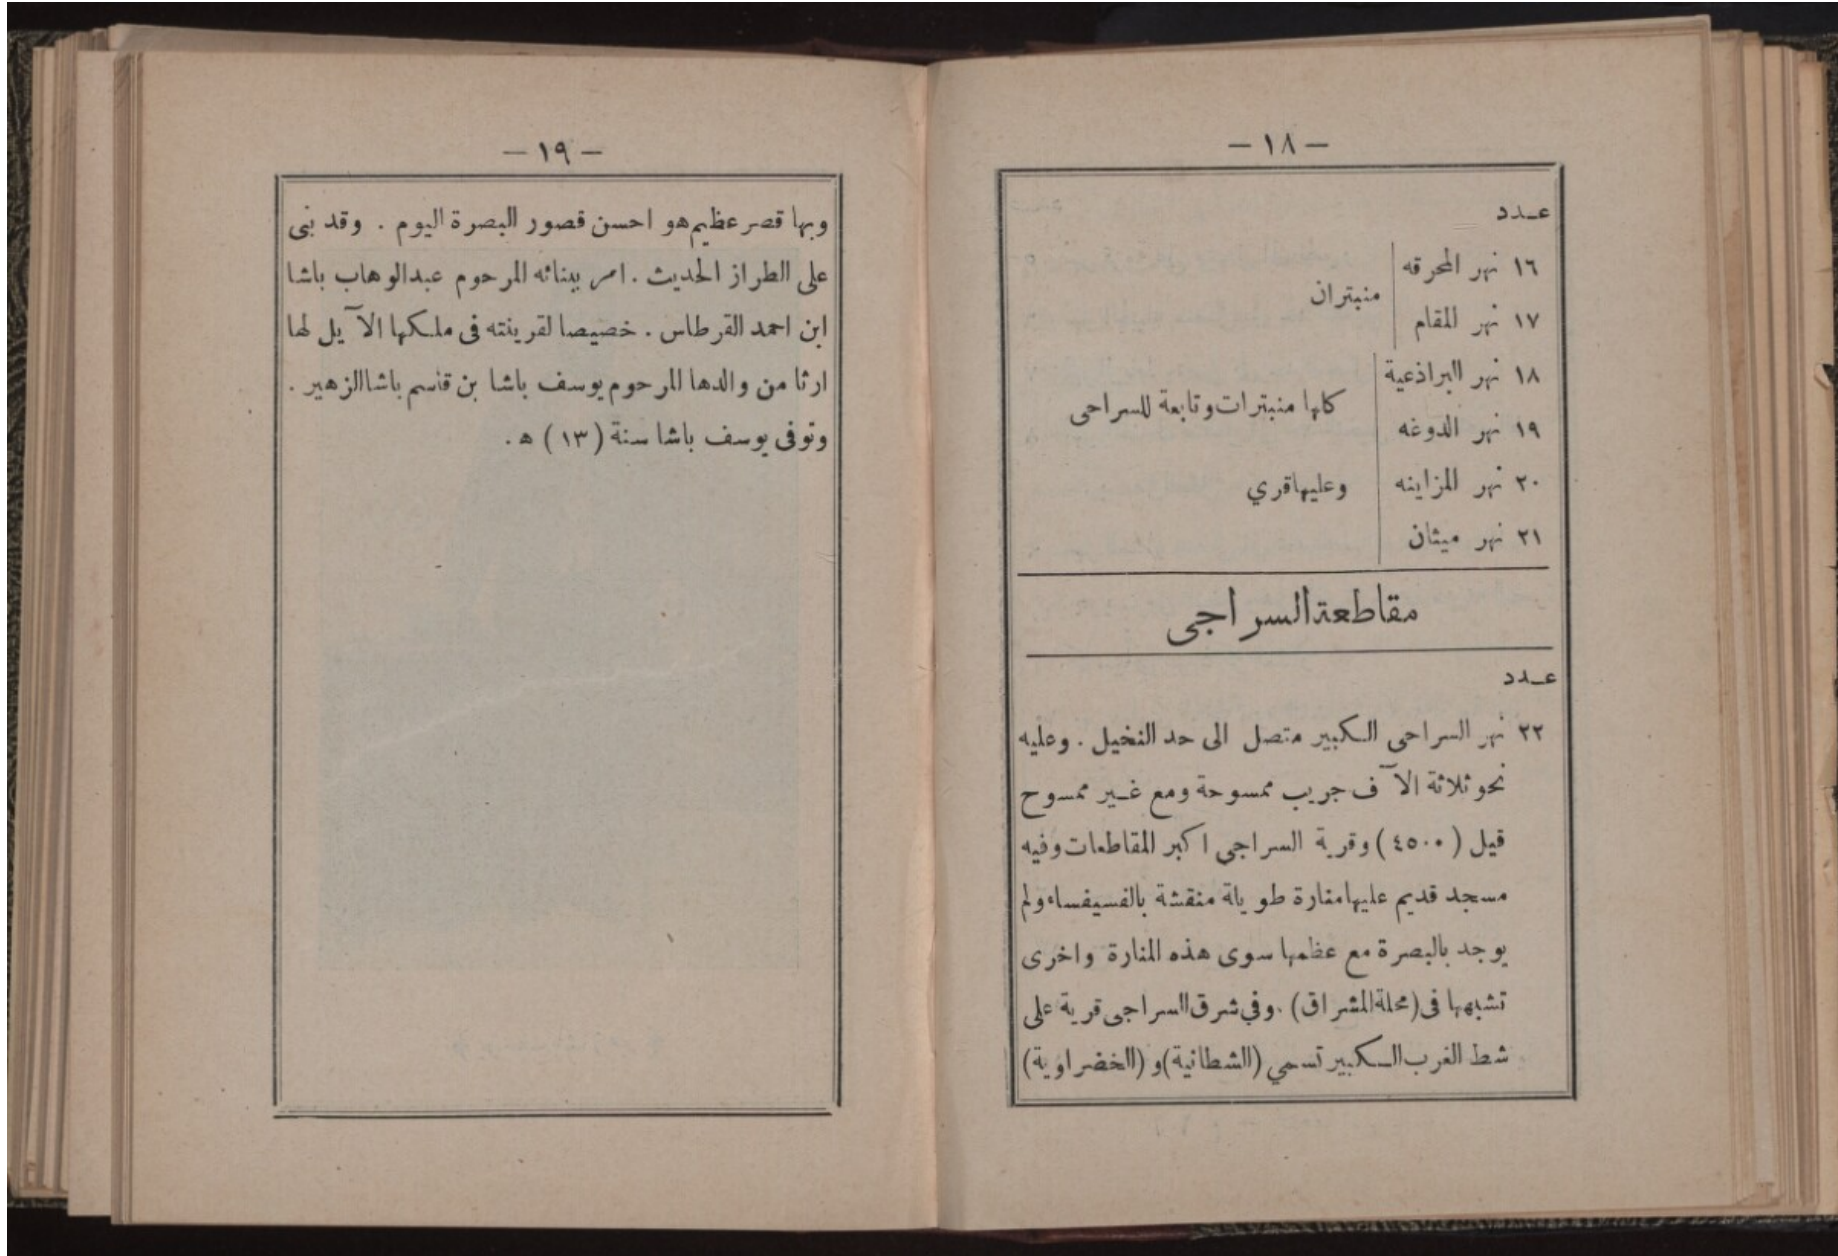 — ١٨ —
عـدد
١٦ نهر المحرقه
منبتران
١٧ نهر المقام
١٨ نهر البراذعية
كلها منبترات وتابعة للسراحى
١٩ نهر الدوغه
٢٠ نهر المزاينه
وعليها قري
٢١ نهر ميثان
مقاطعة السراجى
عـدد
٢٢ نهر السراحى الـكبير متصل الى حد النخيل . وعليه
نحو ثلاثة الآف جريب ممسوحة ومع غـير ممسوح
قيل ( ٤٥٠٠ ) وقرية السراجي اكبر المقاطعات وفيه
مسجد قديم عليها منارة طويلة منقشة بالفسيفساء ولم
يوجد بالبصرة مع عظمها سوى هذه المنارة واخرى
تشبهها فى (محلة المشراق) . وفي شرق السراجى قرية على
شط الغرب الـكبير تسمي (الشطانية) و (الخضراوية)
— ١٩ —
وبها قصر عظيم هو احسن قصور البصرة اليوم . وقد بنى
على الطراز الحديث . امر ببنائه المرحوم عبدالوهاب باشا
ابن احمد القرطاس . خصيصا لقرينته فى ملـكها الآيل لها
ارثا من والدها المرحوم يوسف باشا بن قاسم باشا الزهير .
وتوفى يوسف باشا سنة ( ١٣ ) ه .